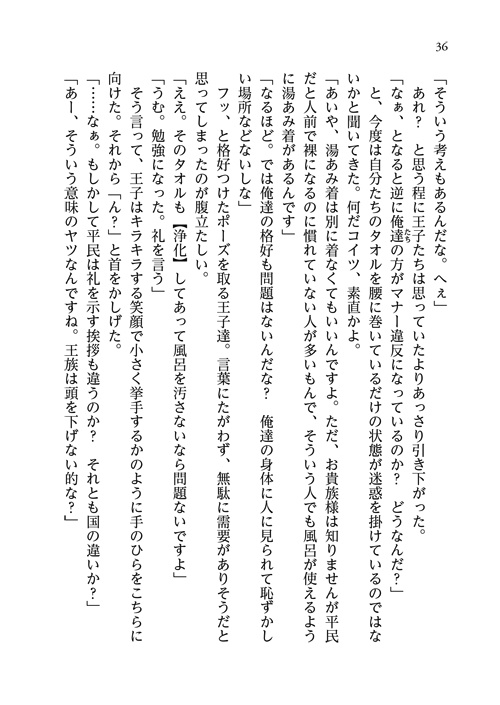 36
「そういう考えもあるんだな。へぇ」
あれ？　と思う程に王子たちは思っていたよりあっさり引き下がった。
「なぁ、となると逆に俺達の方がマナー違反になっているのか？　どうなんだ？」
と、今度は自分たちのタオルを腰に巻いているだけの状態が迷惑を掛けているのではな
いかと聞いてきた。何だコイツ、素直かよ。
「あいや、湯あみ着は別に着なくてもいいんですよ。ただ、お貴族様は知りませんが平民
だと人前で裸になるのに慣れていない人が多いもんで、そういう人でも風呂が使えるよう
に湯あみ着があるんです」
「なるほど。では俺達の格好も問題はないんだな？　俺達の身体に人に見られて恥ずかし
い場所などないしな」
フッ、と格好つけたポーズを取る王子達。言葉にたがわず、無駄に需要がありそうだと
思ってしまったのが腹立たしい。
「ええ。そのタオルも【浄化】してあって風呂を汚さないなら問題ないですよ」
「うむ。勉強になった。礼を言う」
そう言って、王子はキラキラする笑顔で小さく挙手するかのように手のひらをこちらに
向けた。それから「ん？」と首をかしげた。
「……なぁ。もしかして平民は礼を示す挨拶も違うのか？　それとも国の違いか？」
「あー、そういう意味のヤツなんですね。王族は頭を下げない的な？」